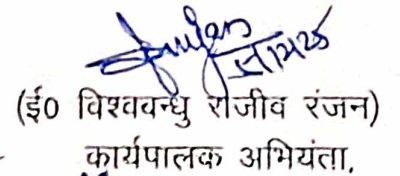 (ई० विश्ववन्धु राजीव रंजन)
कार्यपालक अभियंता,